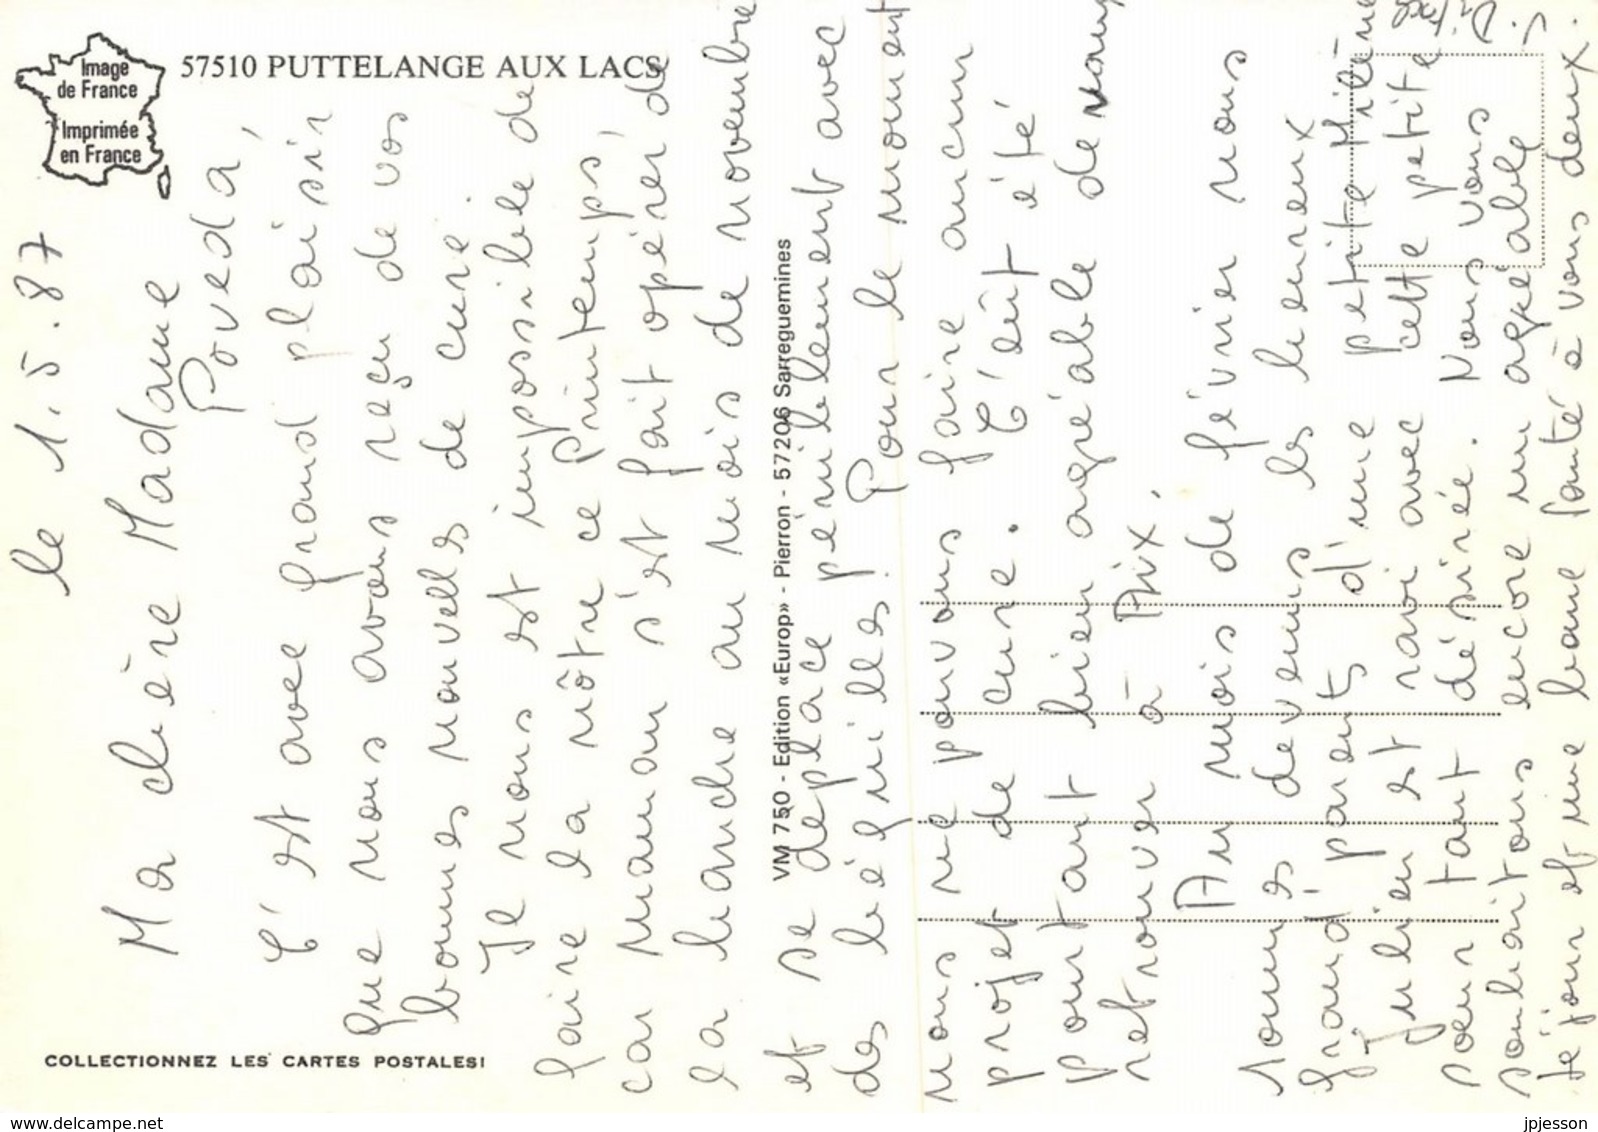 Image
de France
Imprimée
en France
57510 PUTTELANGE AUX LACS
le 1.5.87
Ma chère Madame
Poveda,
C'est avec grand plaisir
que nous avons reçu de vos
bonnes nouvelles de cure.
Il nous est impossible de
faire la nôtre ce Printemps,
car maman s'est fait opérer de
la hanche au mois de novembre
et se déplace péniblement avec
des béquilles. Pour le moment
nous ne pouvons faire aucun
projet de cure. C'eût été
pourtant bien agréable de vous
retrouver à Aix.
Au mois de février nous
sommes devenus les heureux
grand'parents d'une petite
Julien est ravi avec cette petite
soeur tant désirée. Nous vous
souhaitons encore un agréable
séjour et une bonne santé à vous deux.
VM 750 - Edition «Europ» - Pierron - 57206 Sarreguemines
COLLECTIONNEZ LES CARTES POSTALES!
www.delcampe.net
jpjesson